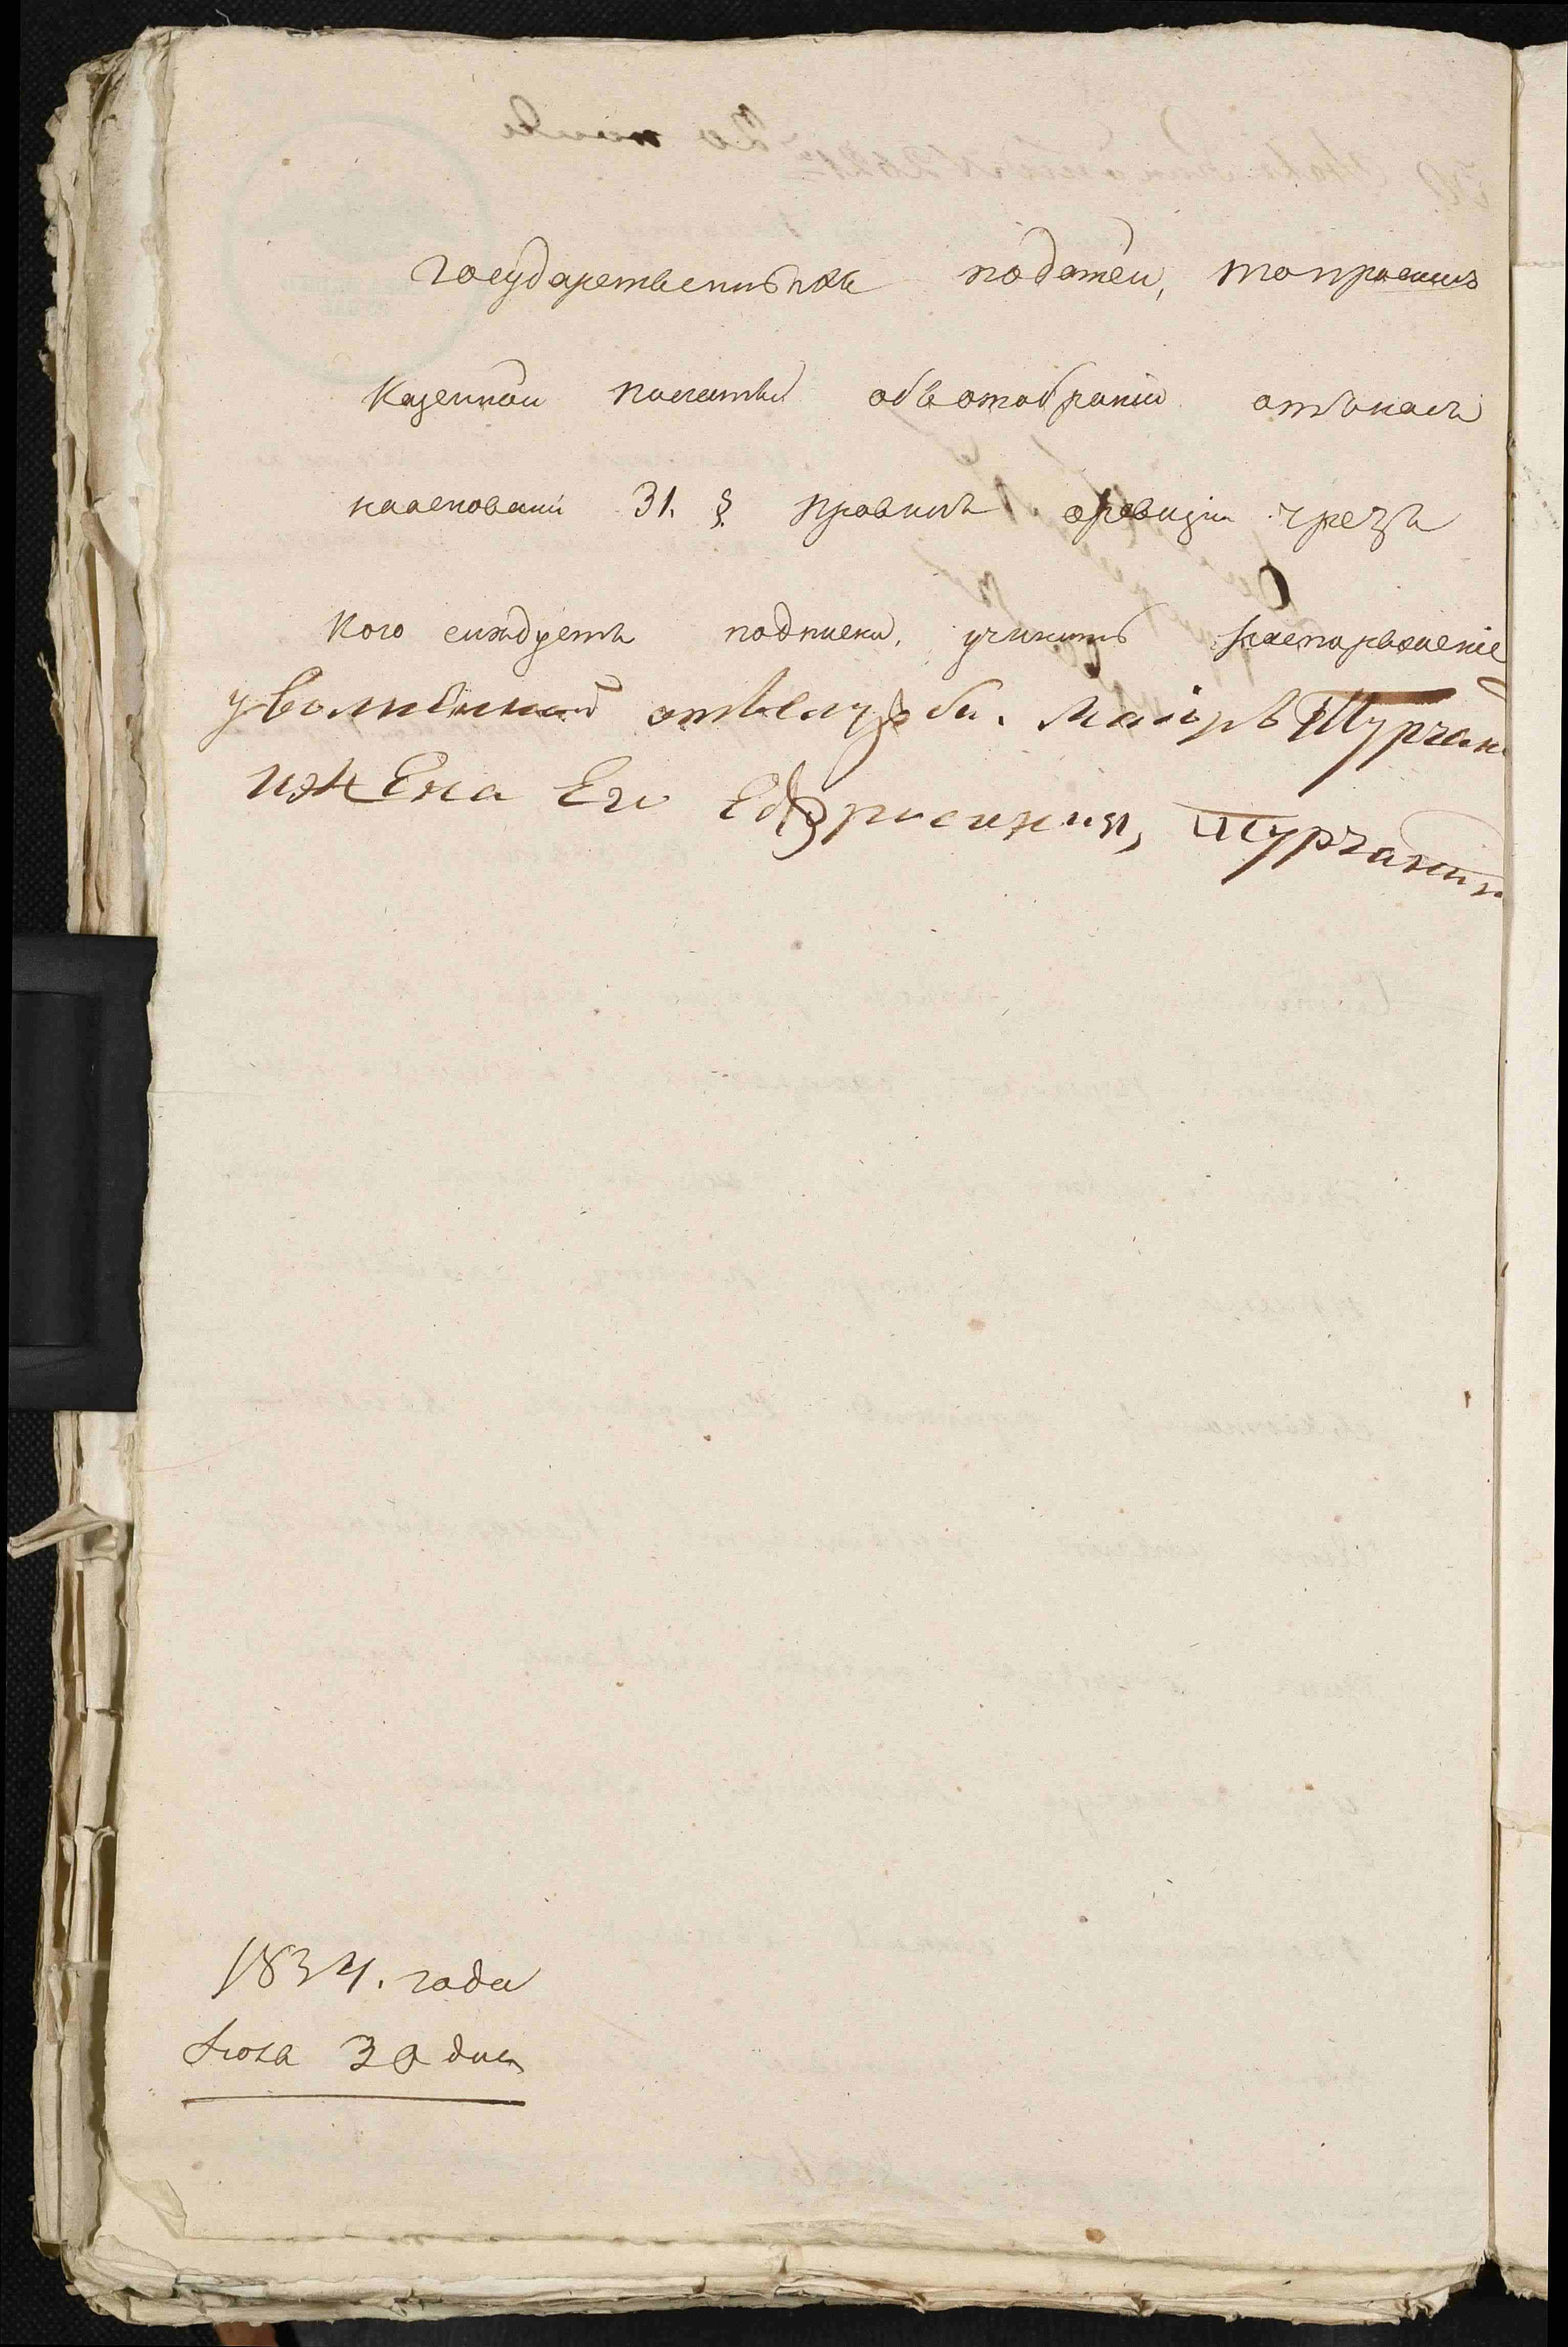 государственныхъ податей, то просимъ
Казенной палаты объ отобраніи отъ насъ
на основаніи 31. § правилъ о ревизіи чрезъ
кого слѣдуетъ подписки, учинить распоряженіе
уволънѣнной отъ службы. Маиоръ Турчан
и жЕна Его Ефросиния, Турчанин
1834. года
Июля 30 дня